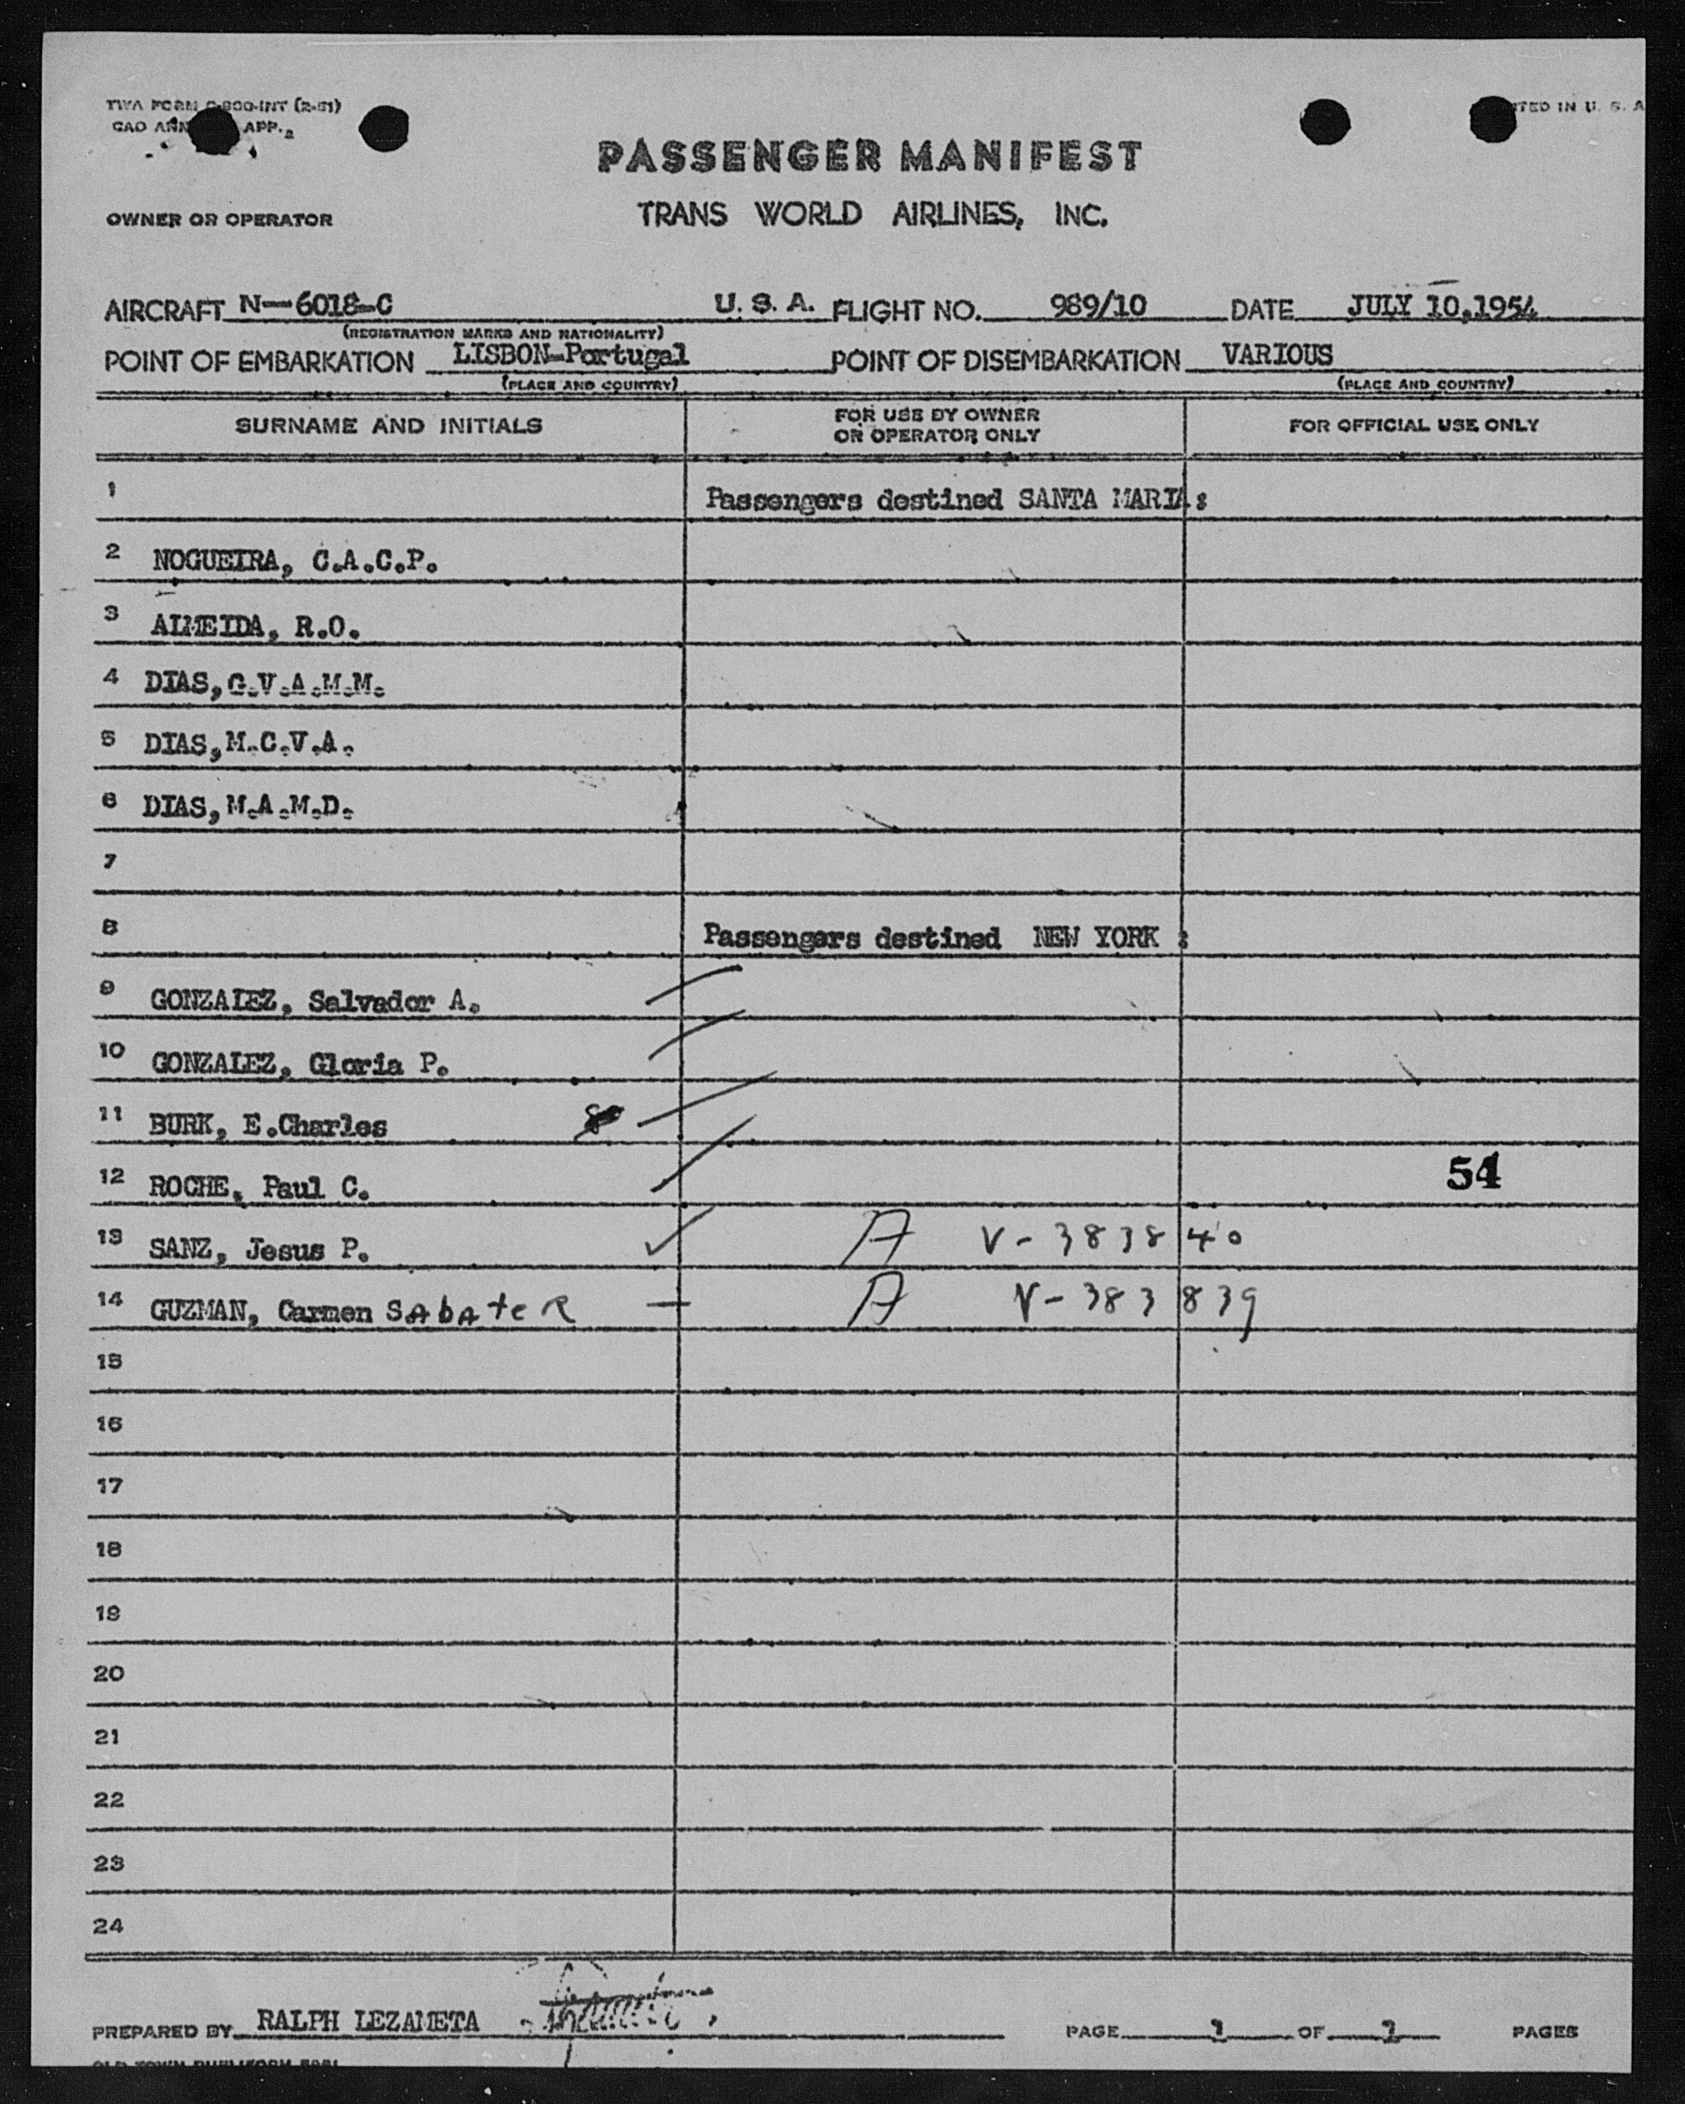 TWA FORM C-800-INT (2-51)
CAO ANN APP. 2
TED IN U. S. A
PASSENGER MANIFEST
OWNER OR OPERATOR
TRANS WORLD AIRLINES, INC.
AIRCRAFT N-6018-C U. S. A. FLIGHT NO. 989/10 DATE JULY 10,1954
(REGISTRATION MARKS AND NATIONALITY)
POINT OF EMBARKATION LISBON-Portugal POINT OF DISEMBARKATION VARIOUS
(PLACE AND COUNTRY) (PLACE AND COUNTRY)
SURNAME AND INITIALS FOR USE BY OWNER OR OPERATOR ONLY FOR OFFICIAL USE ONLY
1 Passengers destined SANTA MARIA:
2 NOGUEIRA, C.A.C.P.
3 ALMEIDA, R.O.
4 DIAS,G.V.A.M.M.
5 DIAS,M.C.V.A.
6 DIAS,M.A.M.D.
7
8 Passengers destined NEW YORK :
9 GONZALEZ, Salvador A.
10 GONZALEZ, Gloria P.
11 BURK, E.Charles
12 ROCHE, Paul C. 54
13 SANZ, Jesus P. ✓ A V-383840
14 GUZMAN, Carmen SAbAteR — A V-383839
15
16
17
18
19
20
21
22
23
24
PREPARED BY RALPH LEZAMETA PAGE OF PAGES